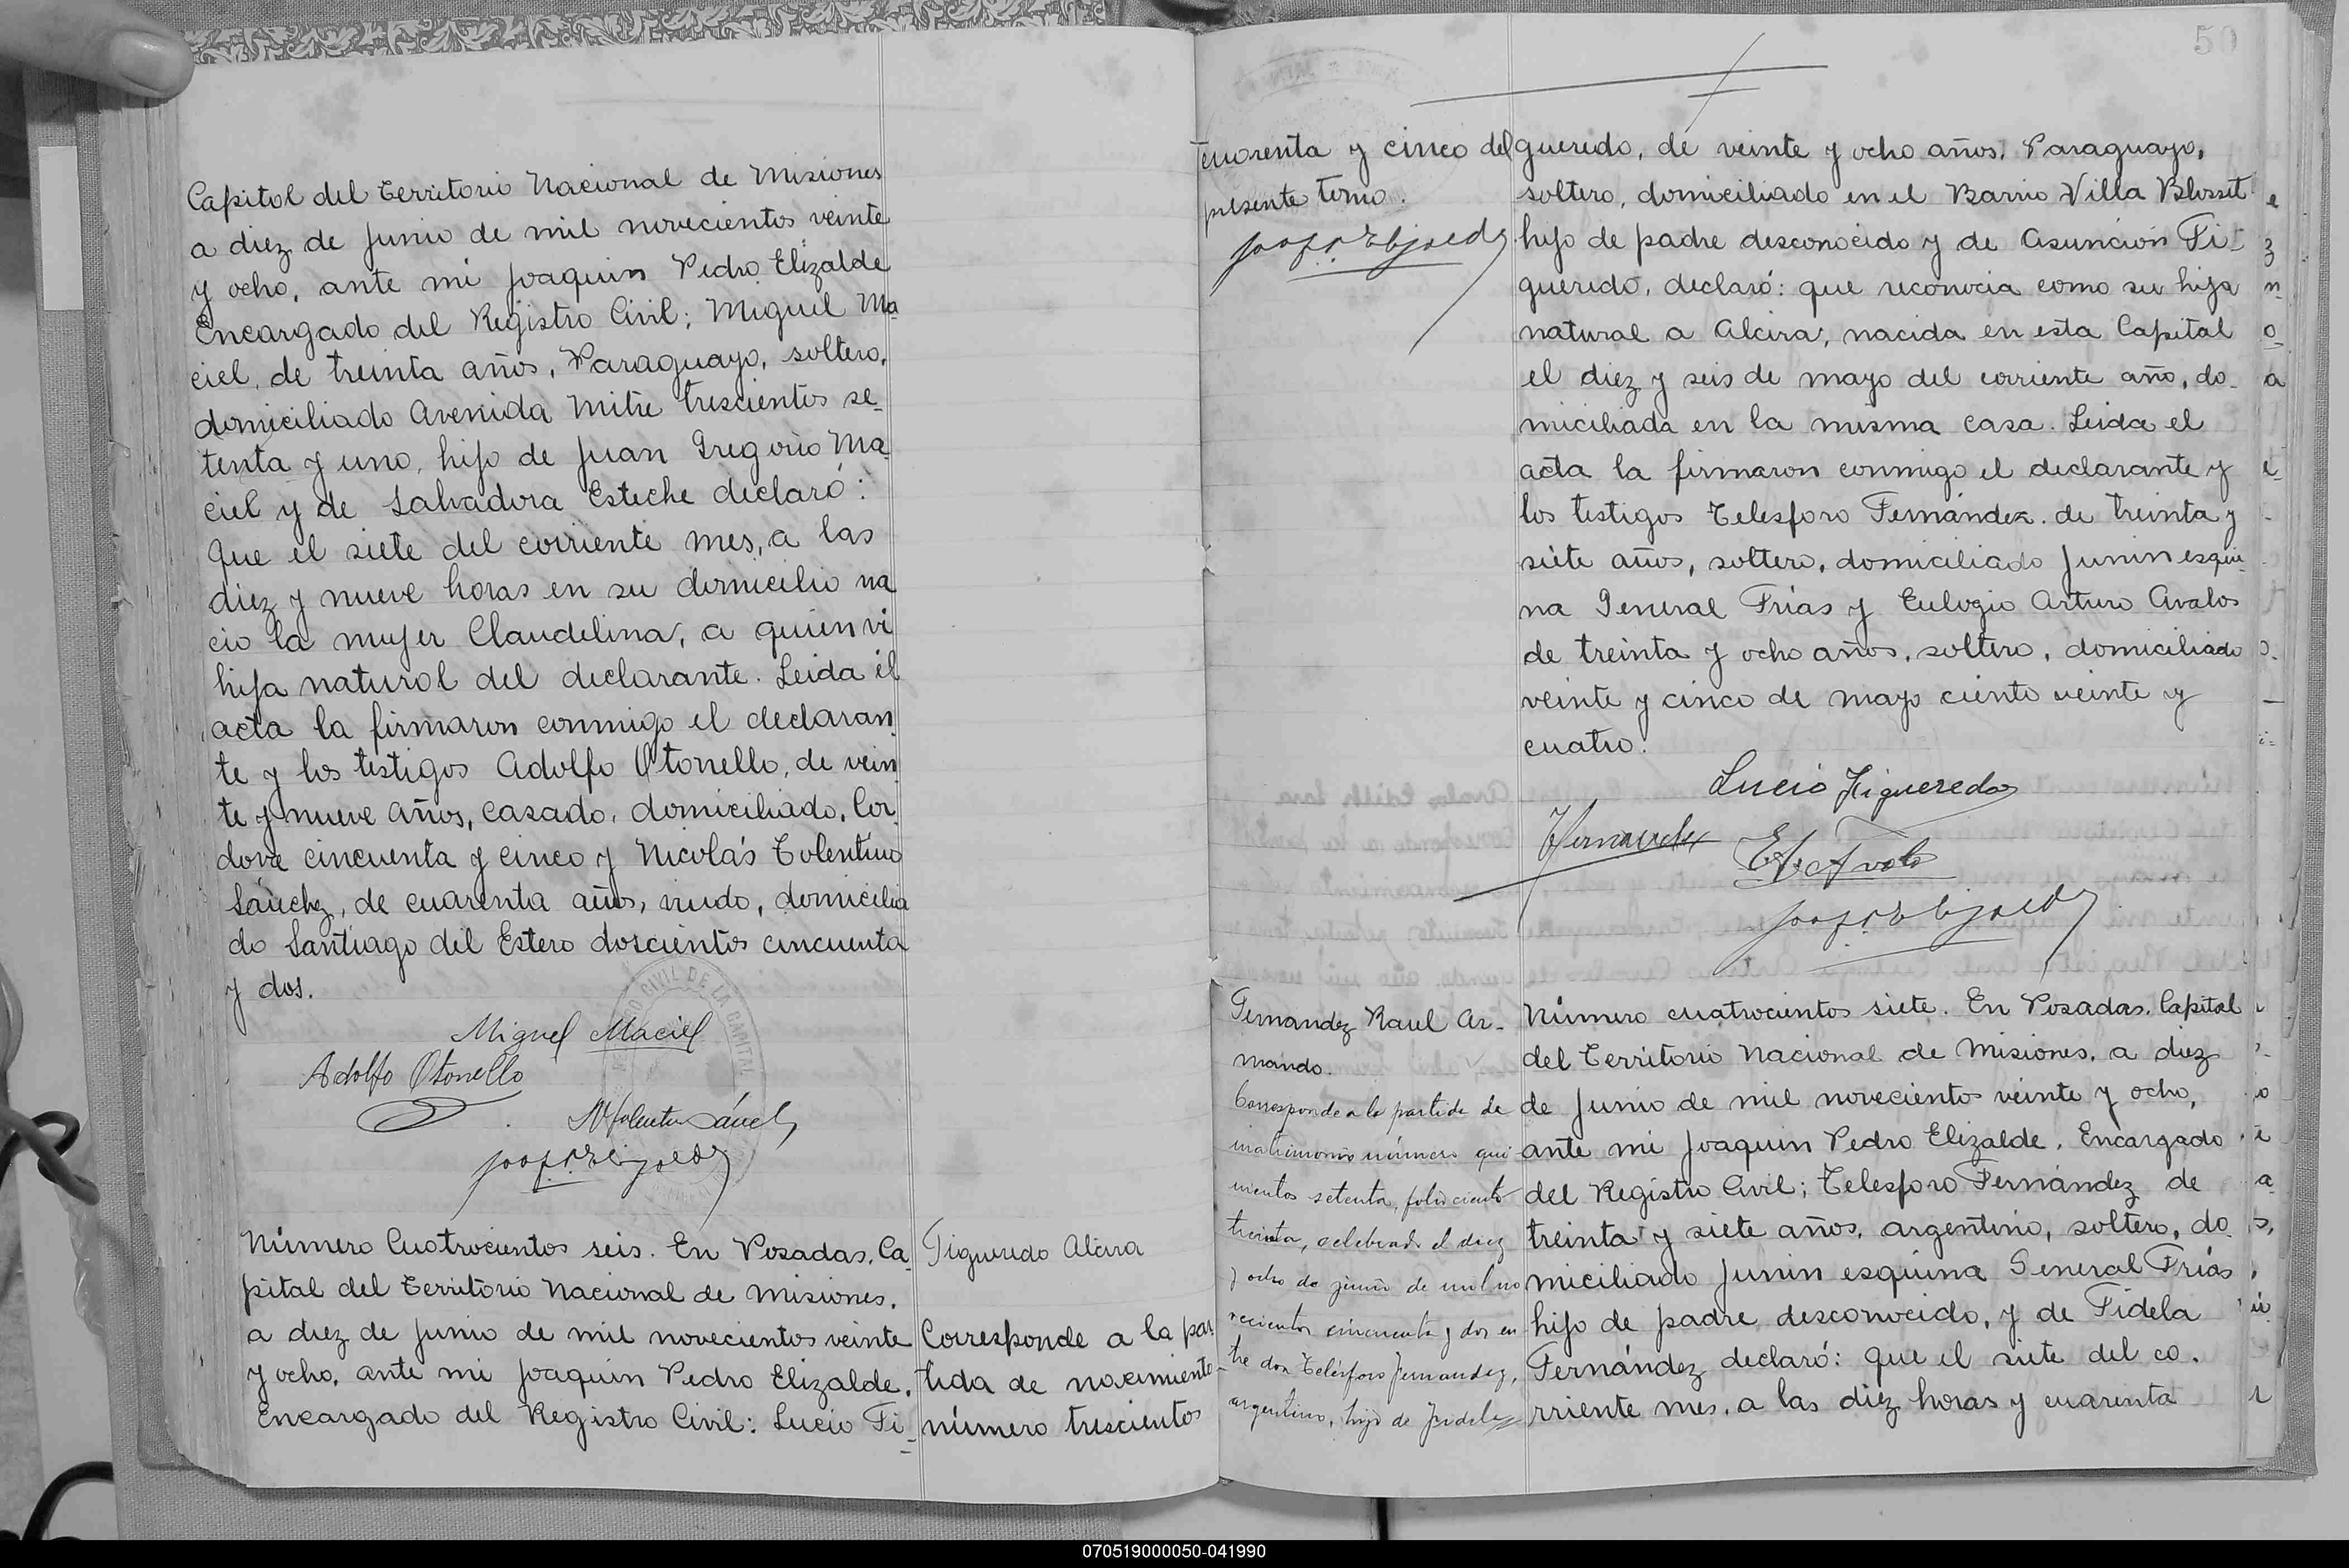 Capital del Territorio Nacional de Misiones
a diez de Junio de mil novecientos veinte
y ocho, ante mi Joaquin Pedro Elizalde
Encargado del Registro Civil; Miguel Ma
ciel, de treinta años, Paraguayo, soltero,
domiciliado Avenida Mitre trescientos se-
tenta y uno, hijo de Juan Gregorio Ma
ciel y de Salvadora Esteche declaró:
Que el siete del corriente mes, a las
diez y nueve horas en su domicilio na
cio la mujer Claudelina, a quien vi
hija natural del declarante. Leida el
acta la firmaron conmigo el declaran
te y los testigos Adolfo Otonello, de vein
te y nueve años, casado, domiciliado, Cor
dova cincuenta y cinco y Nicolás Tolentino
Sánchez, de cuarenta años, viudo, domicilia
do Santiago del Estero doscientos cincuenta
y dos.
Miguel Maciel
Adolfo Otonello
Número Cuatrocientos seis. En Posadas, Ca
pital del Territorio Nacional de Misiones,
a diez de Junio de mil novecientos veinte
y ocho, ante mi Joaquin Pedro Elizalde,
Encargado del Registro Civil: Lucio Fi-
Figueredo Alcira
Corresponde a la par
tida de nacimiento
número trescientos
50
cuarenta y cinco del
presente tomo.
gueredo, de veinte y ocho años, Paraguayo,
soltero, domiciliado en el Barrio Villa Blosset
hijo de padre desconocido y de Asunción Fi-
gueredo, declaró: que reconocia como su hija
natural a Alcira, nacida en esta Capital
el diez y seis de mayo del corriente año, do-
miciliada en la misma casa. Leida el
acta la firmaron conmigo el declarante y
los testigos Telesforo Fernández de treinta y
siete años, soltero, domiciliado Junin esqui-
na General Frías y Eulogio Arturo Avalos
de treinta y ocho años, soltero, domiciliado
veinte y cinco de mayo ciento veinte y
cuatro.
Lucio Figueredo
Fernandez
Fernandez Raul Ar-
mando.
Corresponde a la partida de
matrimonio número qui
nientos setenta, folio ciento
treinta, celebrado el diez
y ocho de junio de mil no
vecientos cincuenta y dos en
tre don Telésforo Fernandez,
argentino, hijo de Fidela
Número cuatrocientos siete. En Posadas, Capital
del Territorio Nacional de Misiones, a diez
de Junio de mil novecientos veinte y ocho,
ante mi Joaquin Pedro Elizalde, Encargado
del Registro Civil; Telesforo Fernández de
treinta y siete años, argentino, soltero, do
miciliado Junin esquina General Frías
hijo de padre desconocido, y de Fidela
Fernández declaró: que el siete del co-
rriente mes, a las diez horas y cuarenta
070519000050-041990